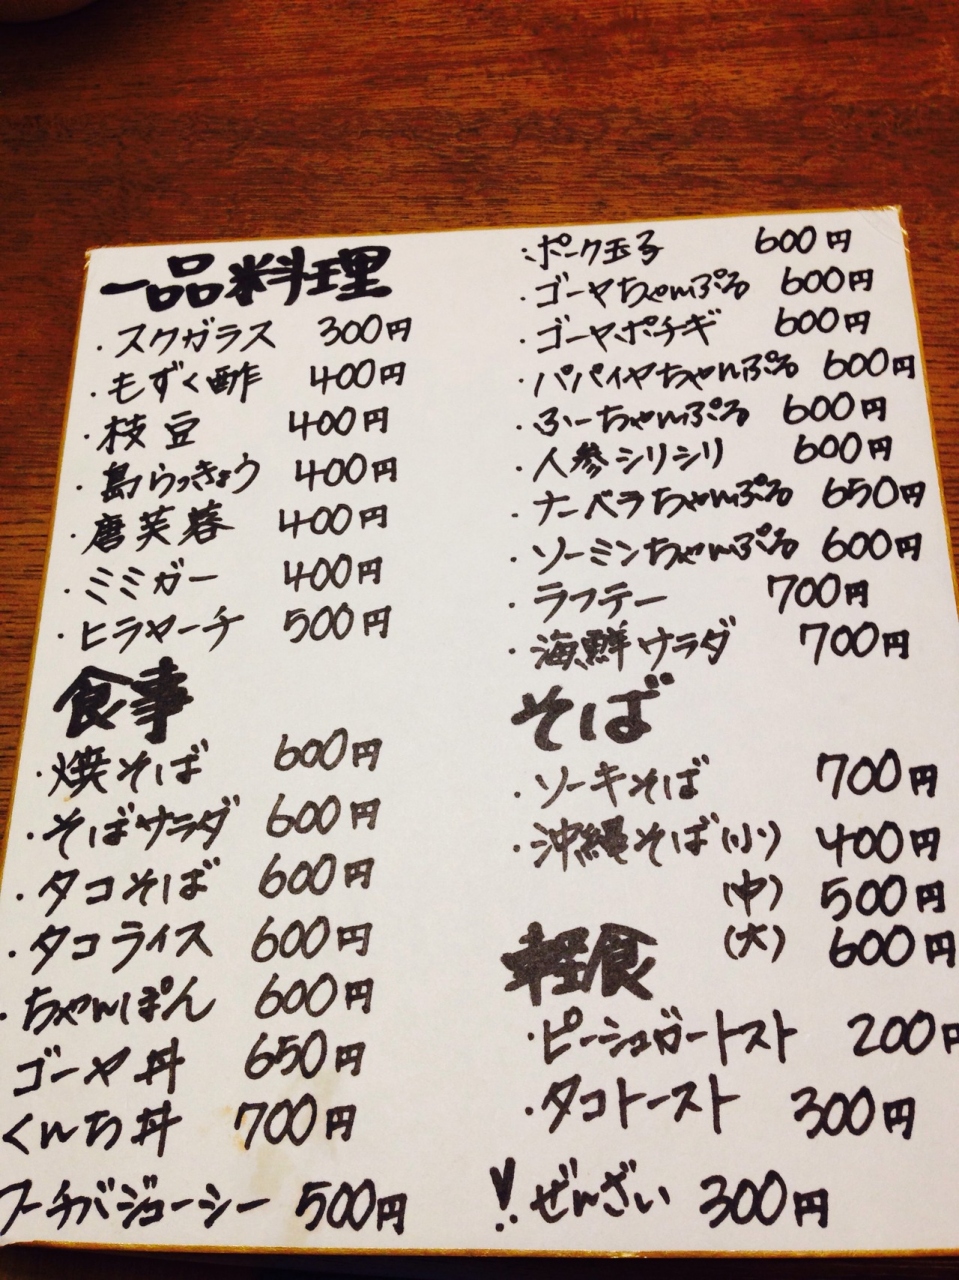 一品料理
・スクガラス 300円
・もずく酢 400円
・枝豆 400円
・島らっきょう 400円
・唐芙蓉 400円
・ミミガー 400円
・ヒラヤーチ 500円
食事
・焼そば 600円
・そばサラダ 600円
・タコそば 600円
・タコライス 600円
・ちゃんぽん 600円
ゴーヤ丼 650円
くんち丼 700円
フーチバジューシー 500円
・ポーク玉子 600円
・ゴーヤちゃんぷる 600円
・ゴーヤポチギ 600円
・パパイヤちゃんぷる 600円
・ふーちゃんぷる 600円
・人参シリシリ 600円
・ナーベラちゃんぷる 650円
・ソーミンちゃんぷる 600円
・ラフテー 700円
・海鮮サラダ 700円
そば
・ソーキそば 700円
・沖縄そば(小) 400円
(中) 500円
(大) 600円
軽食
・ピーシュガートースト 200円
・タコトースト 300円
!ぜんざい 300円